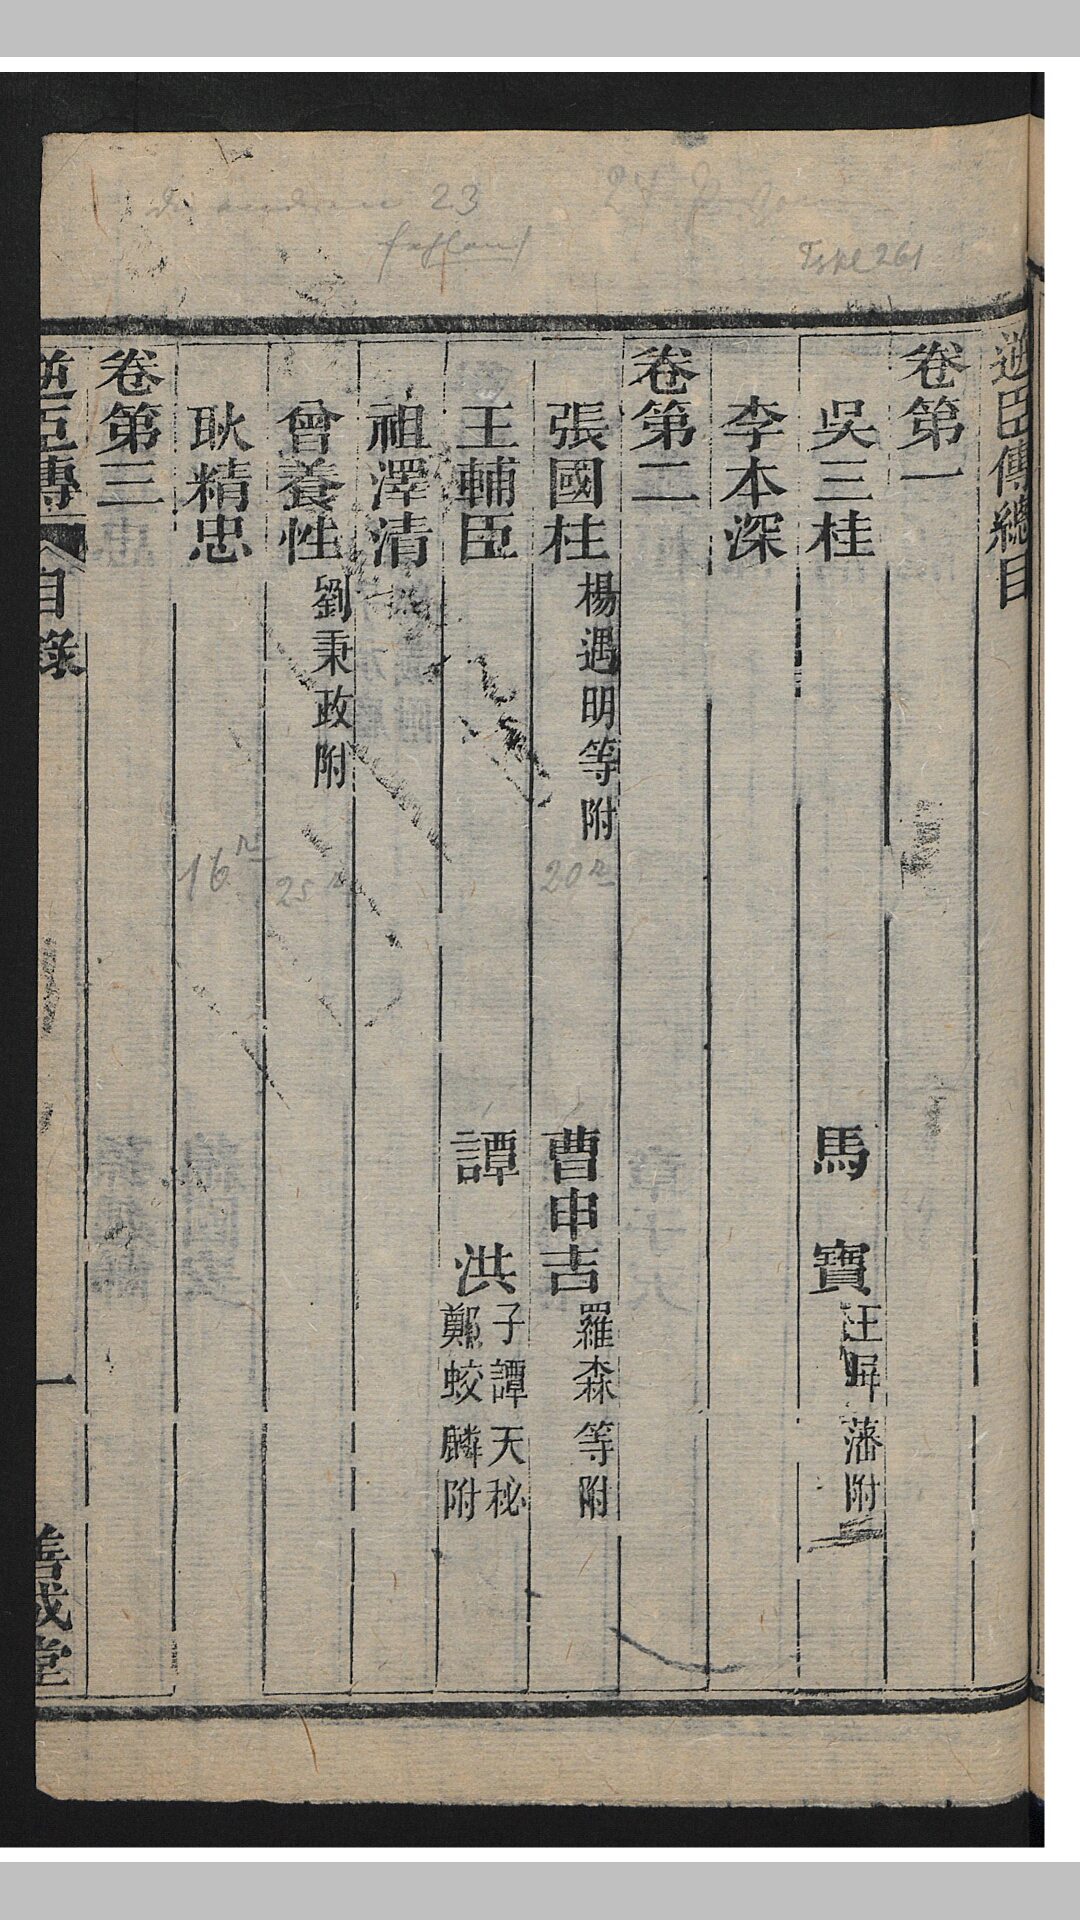 逆臣傳總目
卷第一
吳三桂 馬寶 汪屏藩附
李本深
卷第二
張國柱 楊遇明等附 曹申吉 羅森等附
王輔臣 譚洪 子譚天秘 鄭蛟麟附
祖澤清
曾養性 劉秉政附
耿精忠
卷第三
逆臣傳 目錄 一 善成堂
23
Type 261
20
25
16